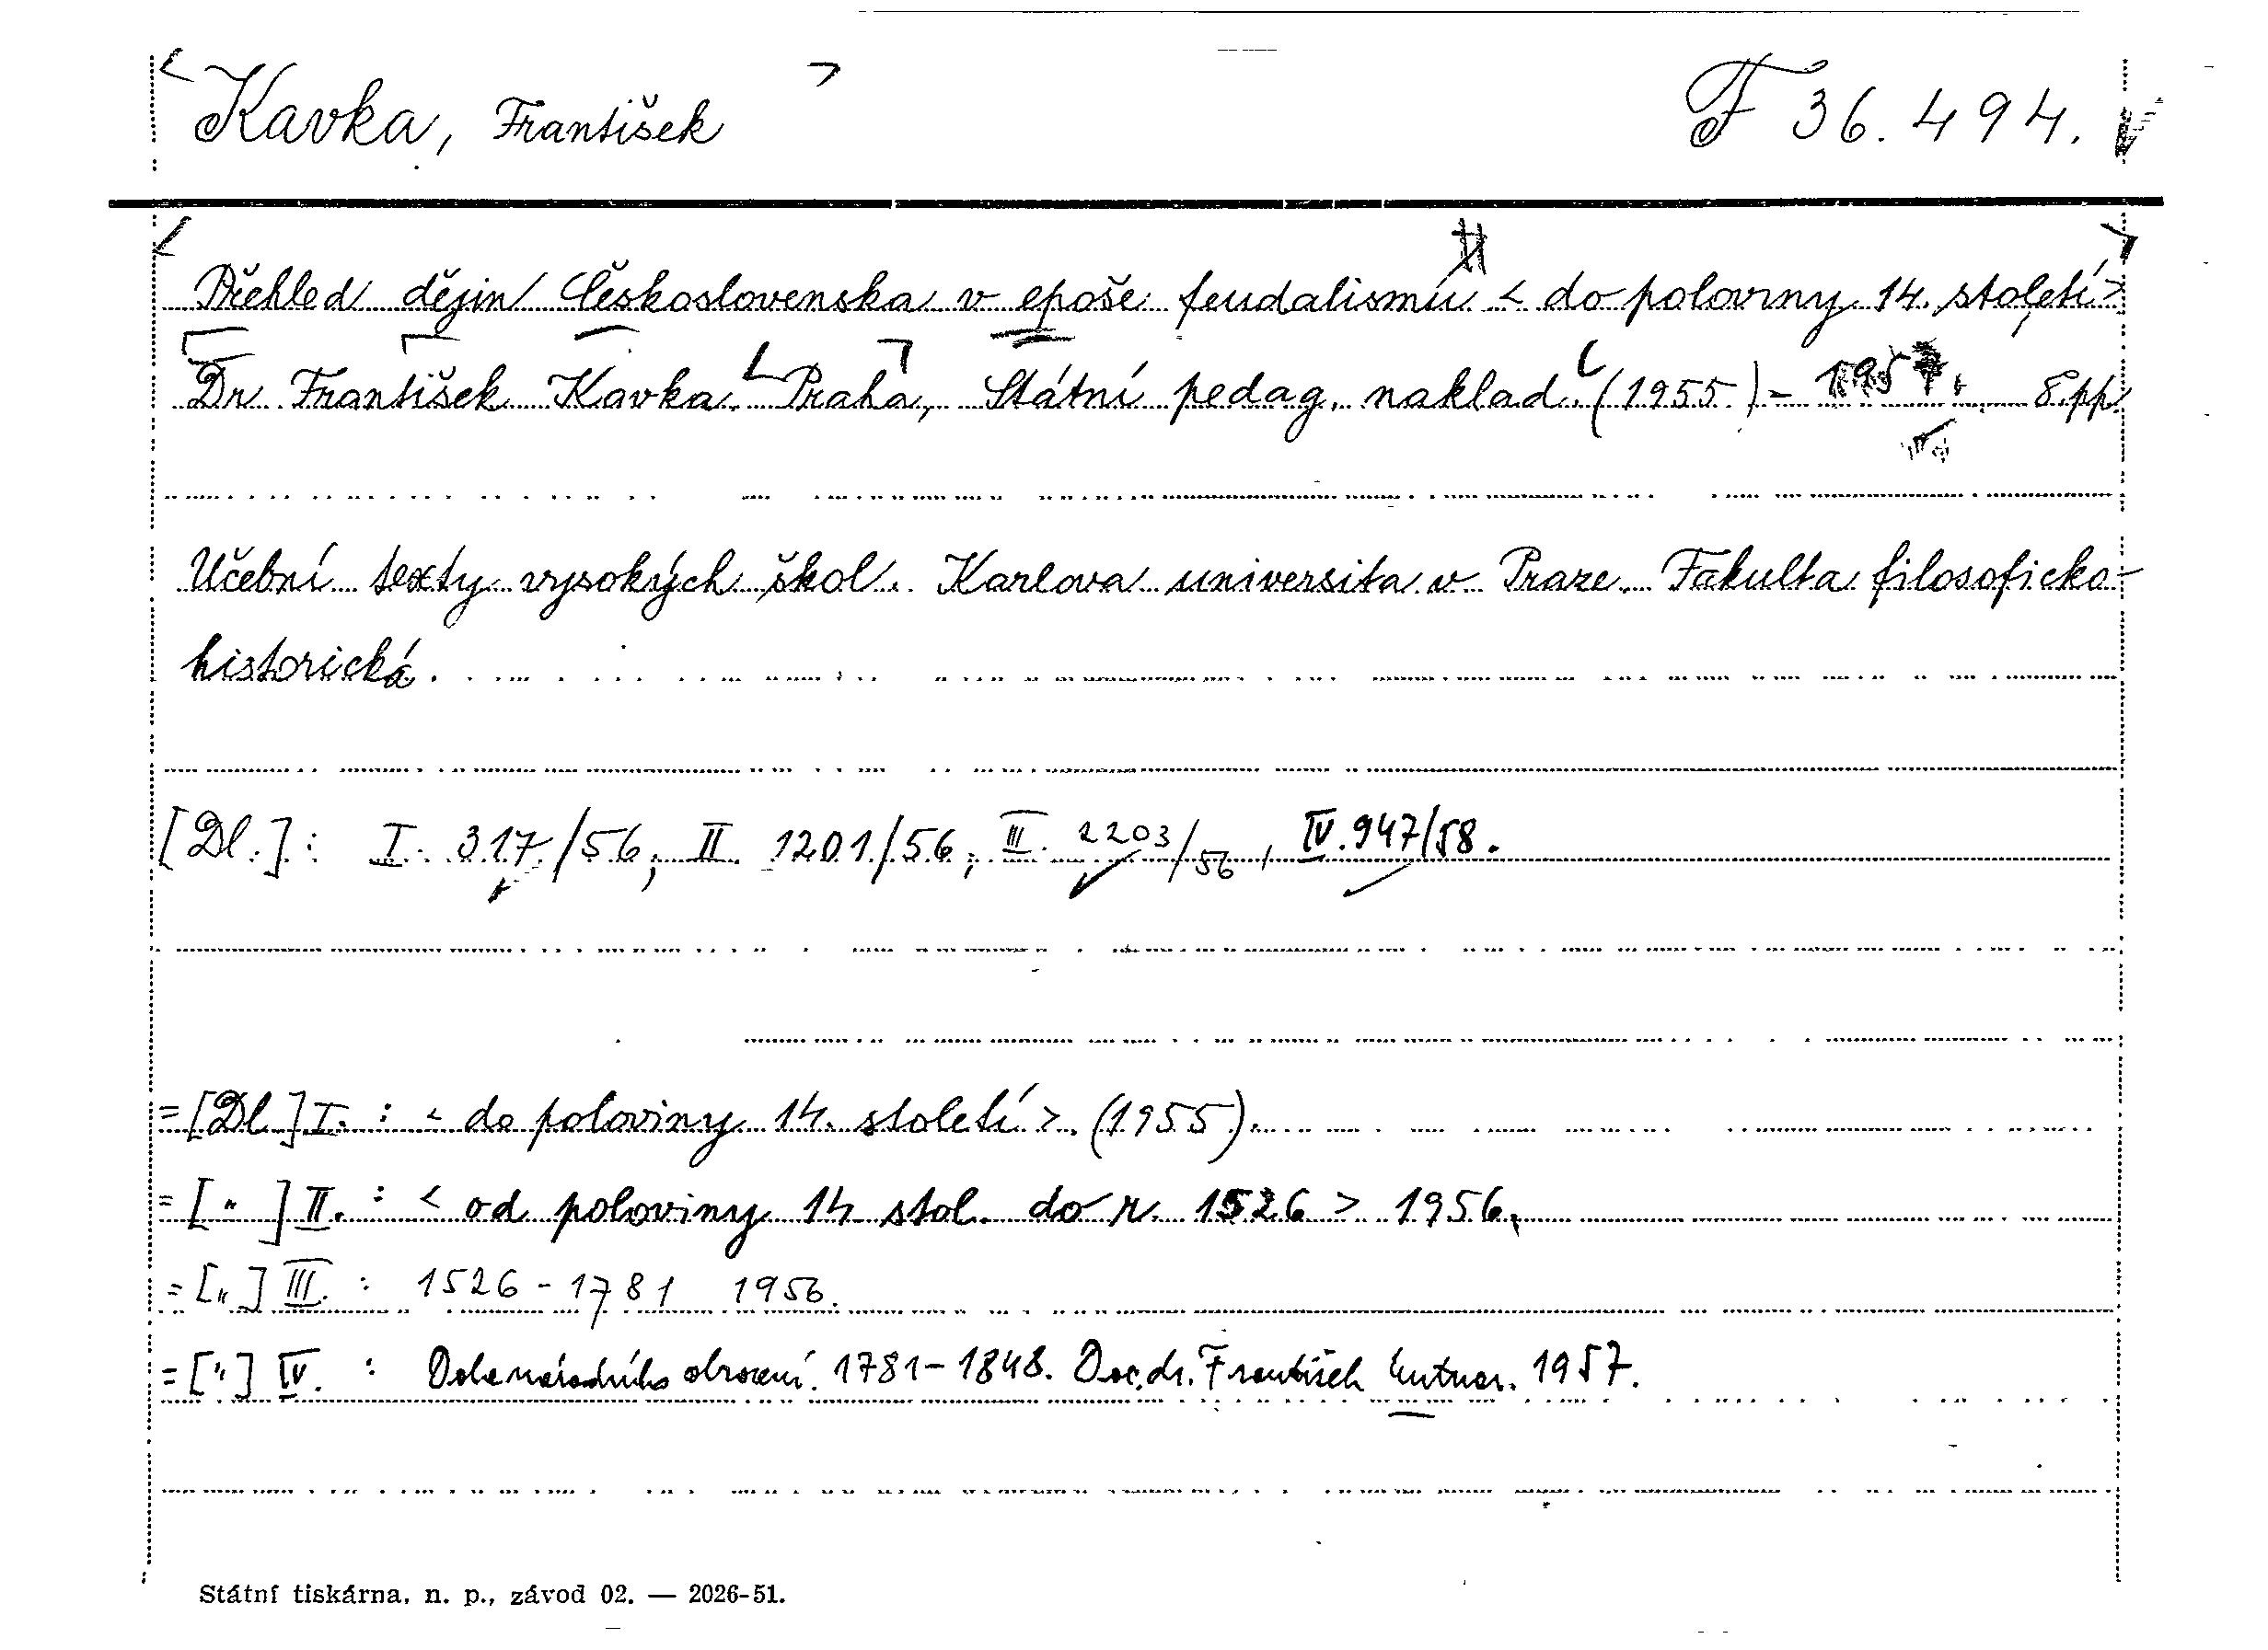 Kavka, František F 36.494.
Přehled dějin Československa v epoše feudalismu < do poloviny 14. století >
Dr František Kavka. Praha, Státní pedag. naklad. (1955) - 1957. 8pp
Učební texty vysokých škol. Karlova universita v Praze. Fakulta filosoficko-
historická.
[Dl.]: I. 317/56, II. 1201/56, III. 2203/56, IV. 947/58.
= [Dl.] I. : < do poloviny 14. století >. (1955).
= [„] II. : < od poloviny 14. stol. do r. 1526 > 1956.
= [„] III. : 1526-1781 1956.
= [„] IV. : Doba národního obrození. 1781-1848. Doc. dr. František Kutnar. 1957.
Státní tiskárna, n. p., závod 02. — 2026-51.